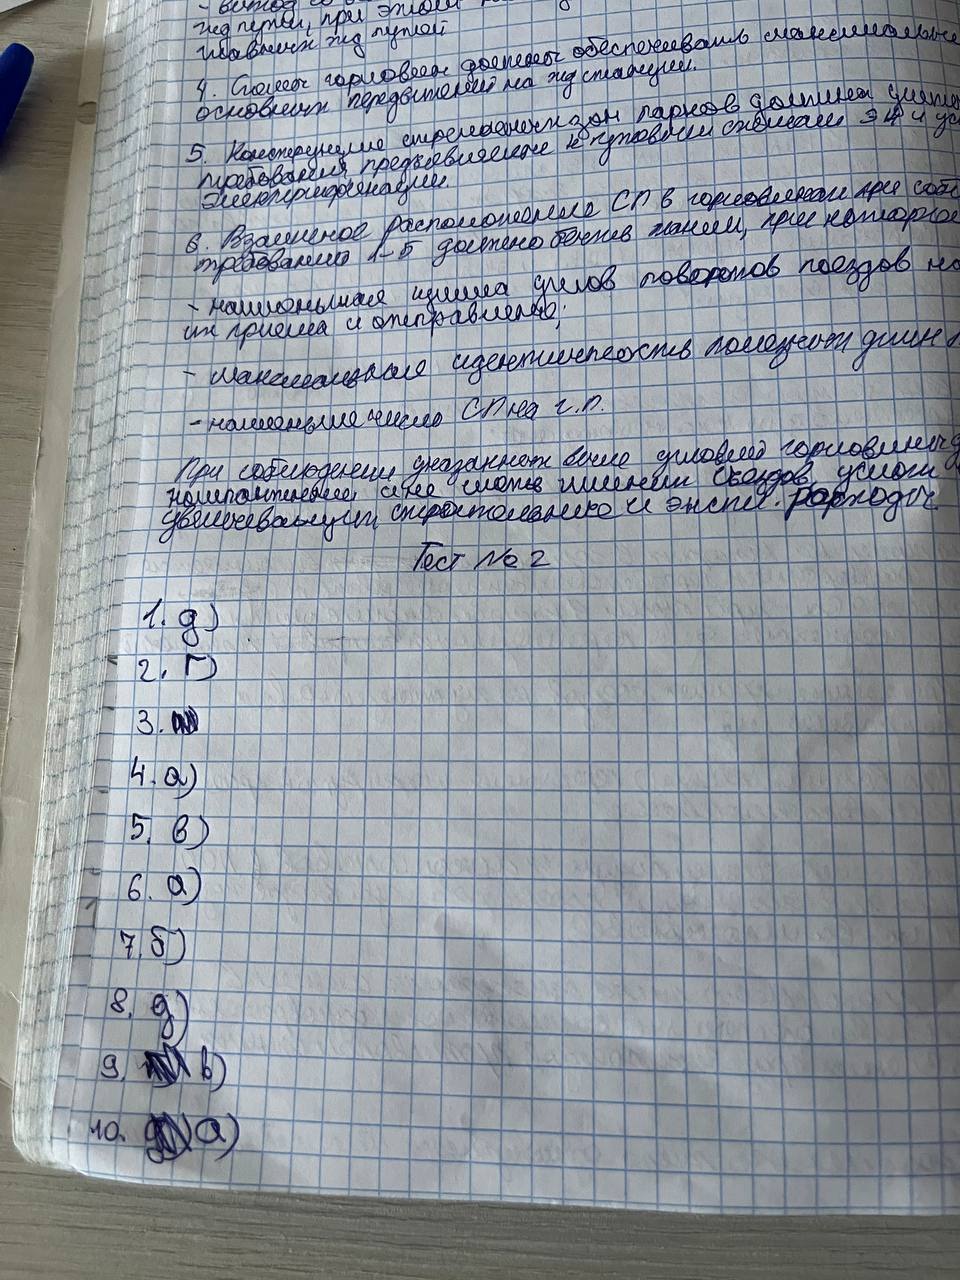 - выход
жд пути, при этом
главных жд путей
4. Схемы горловин должны обеспечивать максимальные
основных передвижений на жд станции.
5. Конструкция стрелочных зон парков должна
требования предъявляемые к путевым схемам ЭЦ и
электрификации.
6. Взаимное расположение СП в горловинах при
требований 1-5 должно быть таким, при котором
- наименьшая сумма углов поворотов поездов
их приема и отправления;
- максимальная идентичность полезных длин
- наименьшее число СП на г.п.
При соблюдении указанных выше условий горловины
компактными и не
увеличивающих строительные и экспл. расходы.
Тест № 2
1. д)
2. г)
3.
4. а)
5. в)
6. а)
7. б)
8. д)
9. в)
10. а)